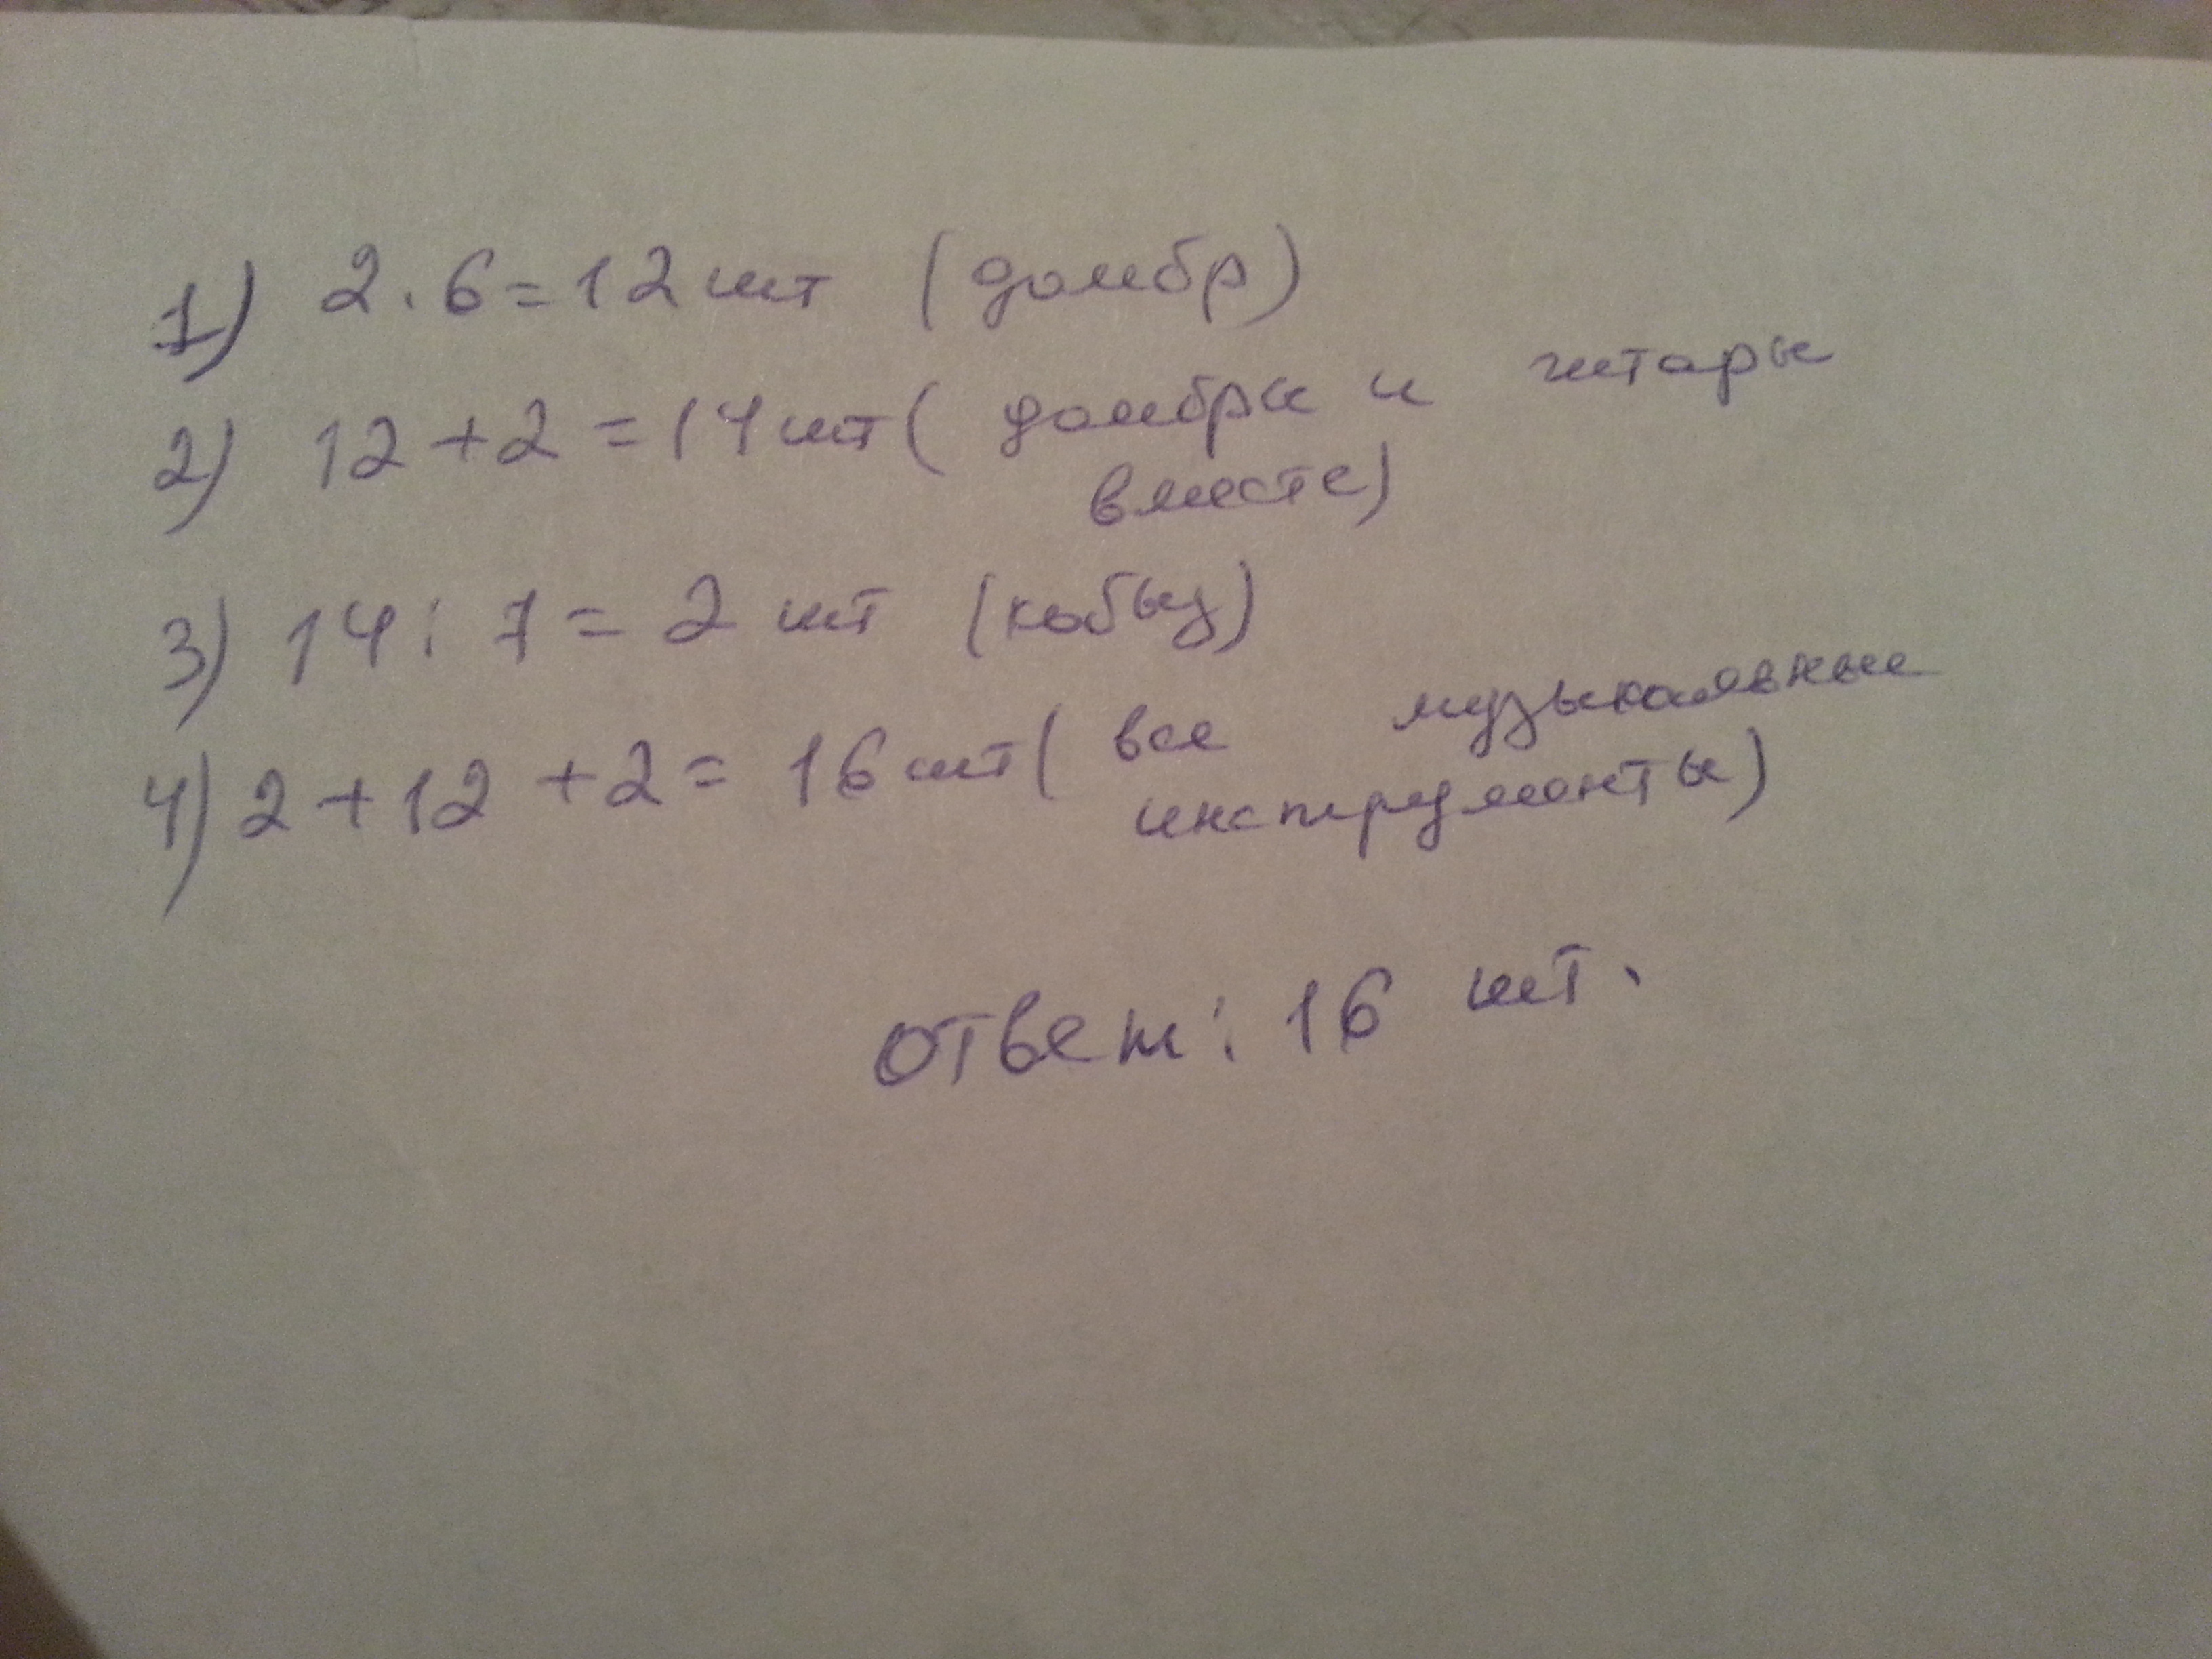 1) 2 · 6 = 12 шт (домбр)
2) 12 + 2 = 14 шт ( домбры и гитары
вместе)
3) 14 : 7 = 2 шт (кобыз)
4) 2 + 12 + 2 = 16 шт ( все музыкальные
инструменты)
ответ : 16 шт.